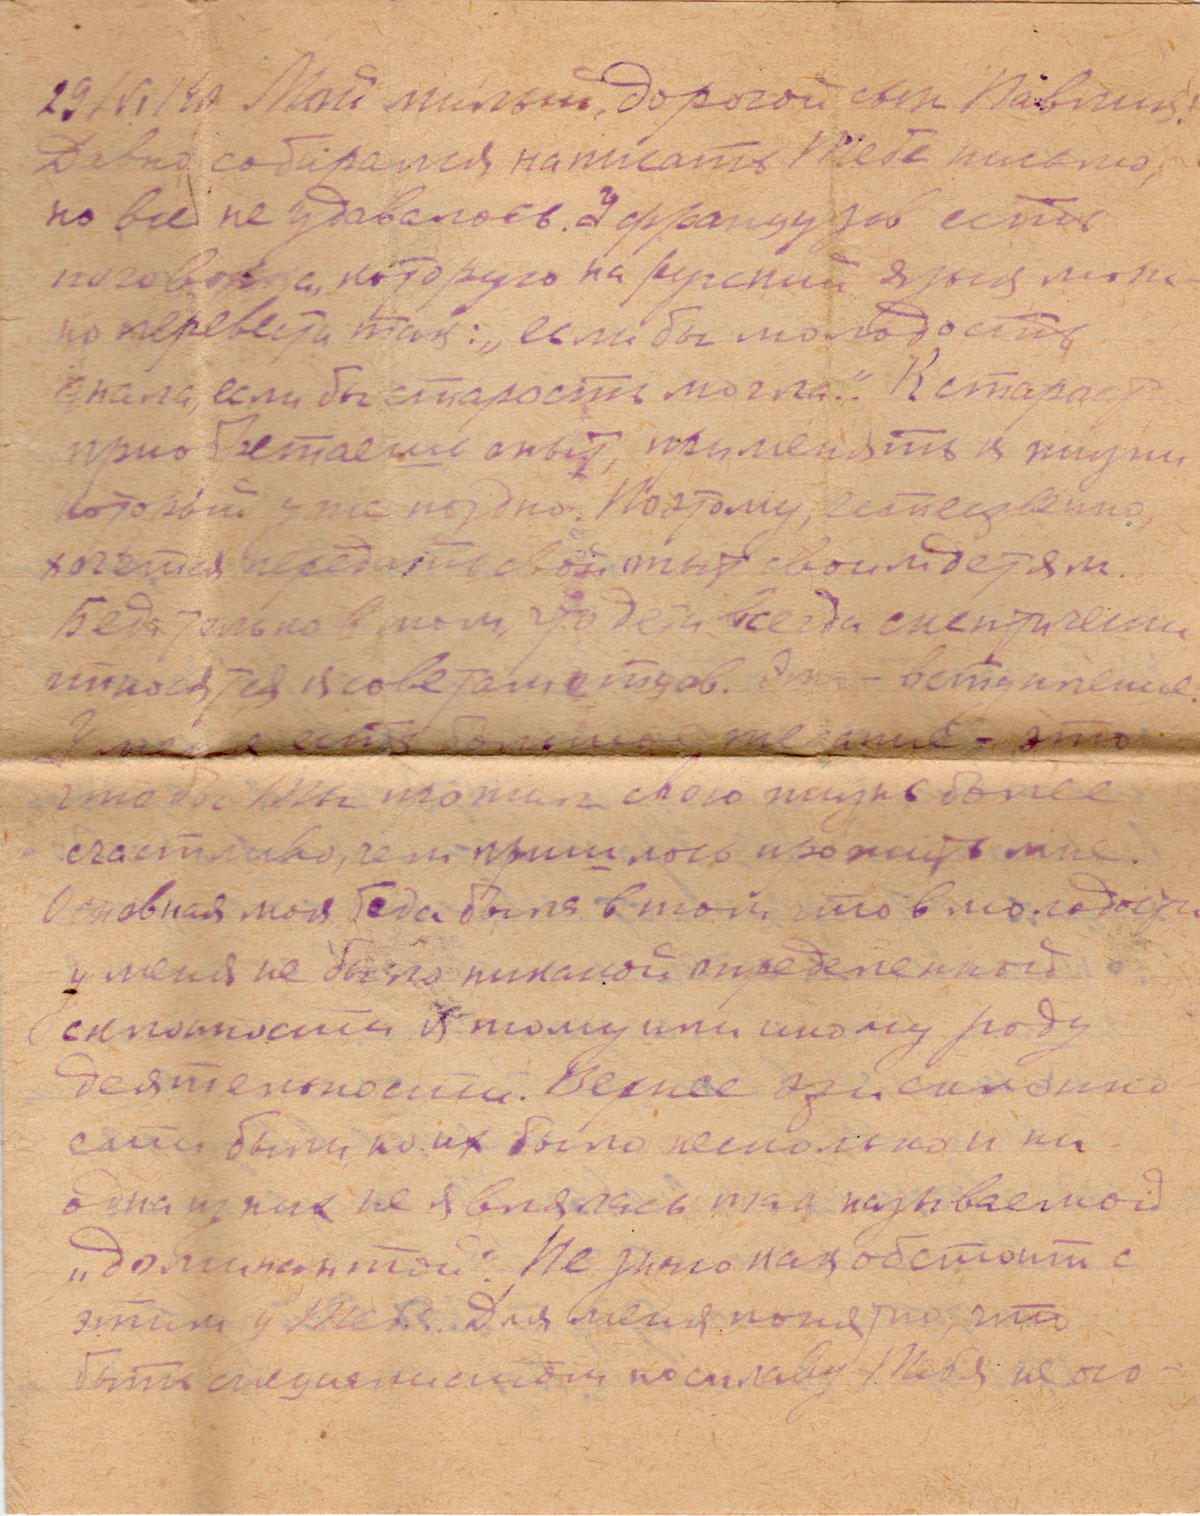 29/VI/40 Мой милый, дорогой сын Павлик!
Давно собирался написать Тебе письмо,
но все не удавалось. У французов есть
поговорка, которую на русский язык мож-
но перевести так: „если бы молодость
знала, если бы старость могла“. К старости
приобретаешь опыт, применять к жизни
который уже поздно. Поэтому, естественно,
хочется передать свой опыт своим детям.
Беда только в том, что дети всегда скептически
относятся к советам отцов. Это – вступление.
У меня есть большое желание – это
чтобы Ты прожил свою жизнь более
счастливо, чем пришлось прожить мне.
Основная моя беда была в том что в молодости
у меня не было никакой определенной
склонности к тому или иному роду
деятельности. Вернее эти склонно
сти были но их было несколько и ни
одна из них не являлась так называемой
„доминантой“. Не знаю как обстоит с
этим у Тебя. Для меня понятно, что
быть специалистом по сплаву Тебя не осо-